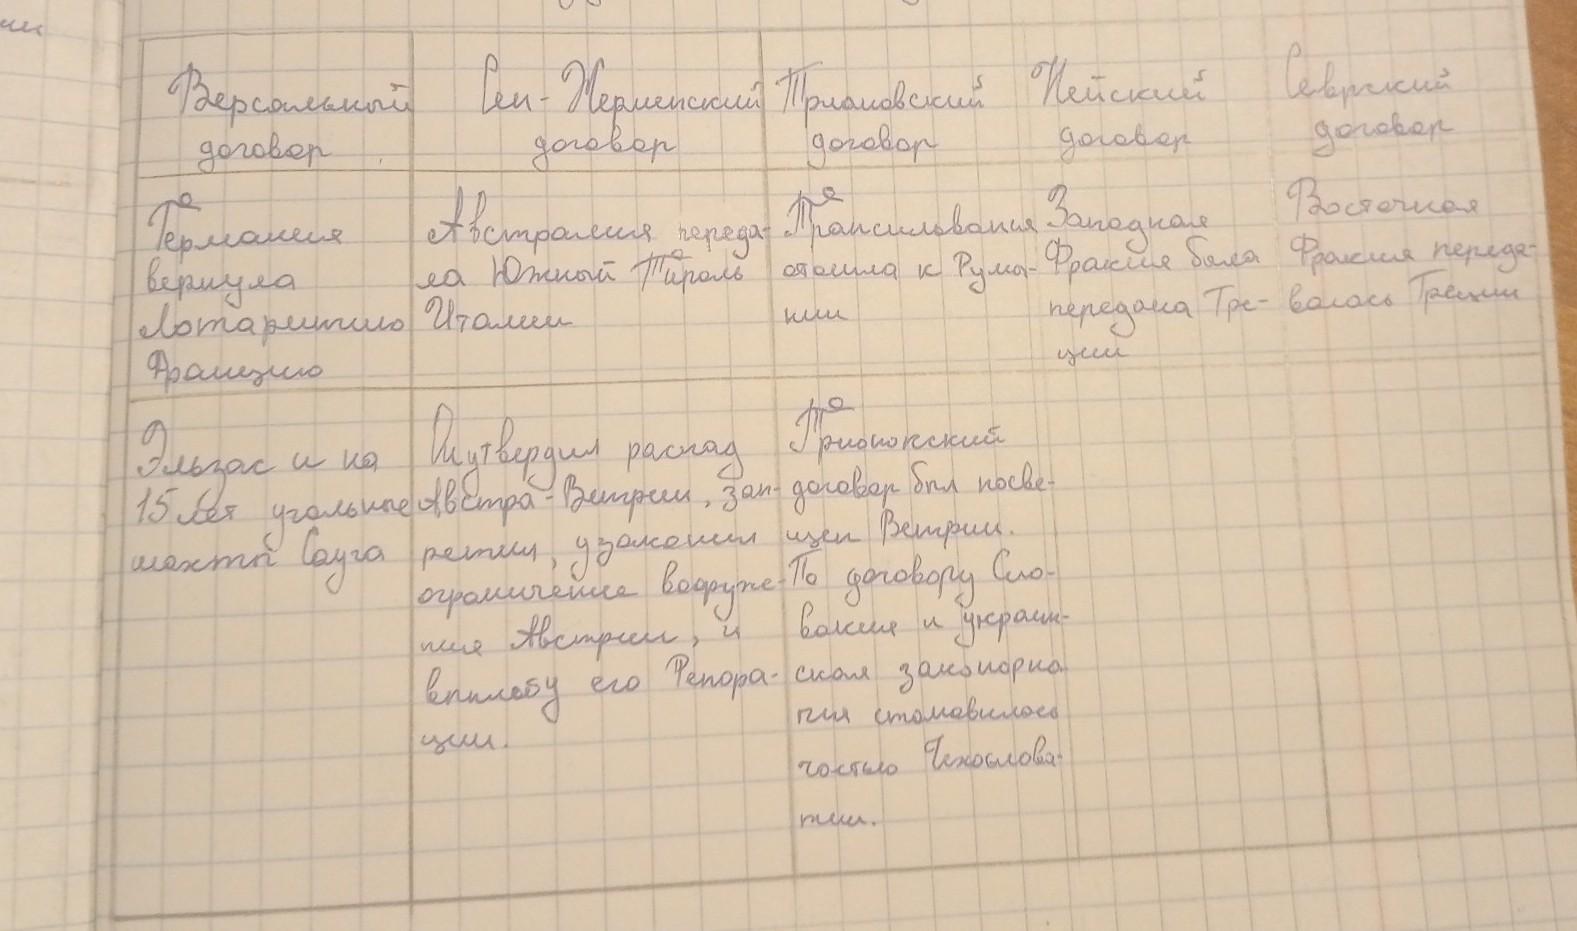 Версальный договор
Сен-Жерменский договор
Триановский договор
Нейский договор
Севрский договор
Германия
вернула
Лотарингию
Францию
Австралия переда-
ла Южный Тироль
Италии
Трансильвания
отошла к Румы-
нии
Западная
Фракия была
передана Гре-
ции
Восточная
Фракия переда-
валась Греции
Эльзас и на
15 лет угольные
шахты Саура
утвердил распад
Австра-Венгрии, зап-
ретил, узаконил
ограничение вооруже-
ния Австрии, и
его Репора-
ции.
договор был посве-
щен Венгрии.
По договору Сло-
вакия и украин-
ская
становилась
частью Чехослова-
кии.